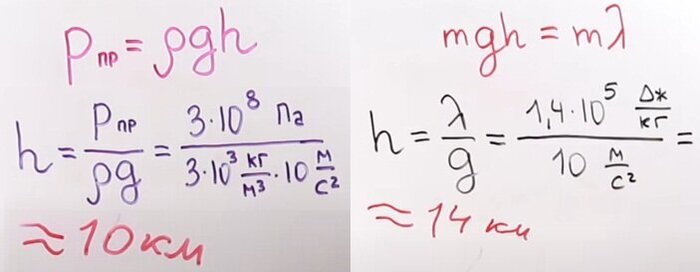 Pпр = ρgh
h = Pпр / ρg = 3·10⁸ Па / 3·10³ кг/м³ · 10 м/с²
≈ 10 км
mgh = mλ
h = λ / g = 1,4·10⁵ Дж/кг / 10 м/с² =
≈ 14 км